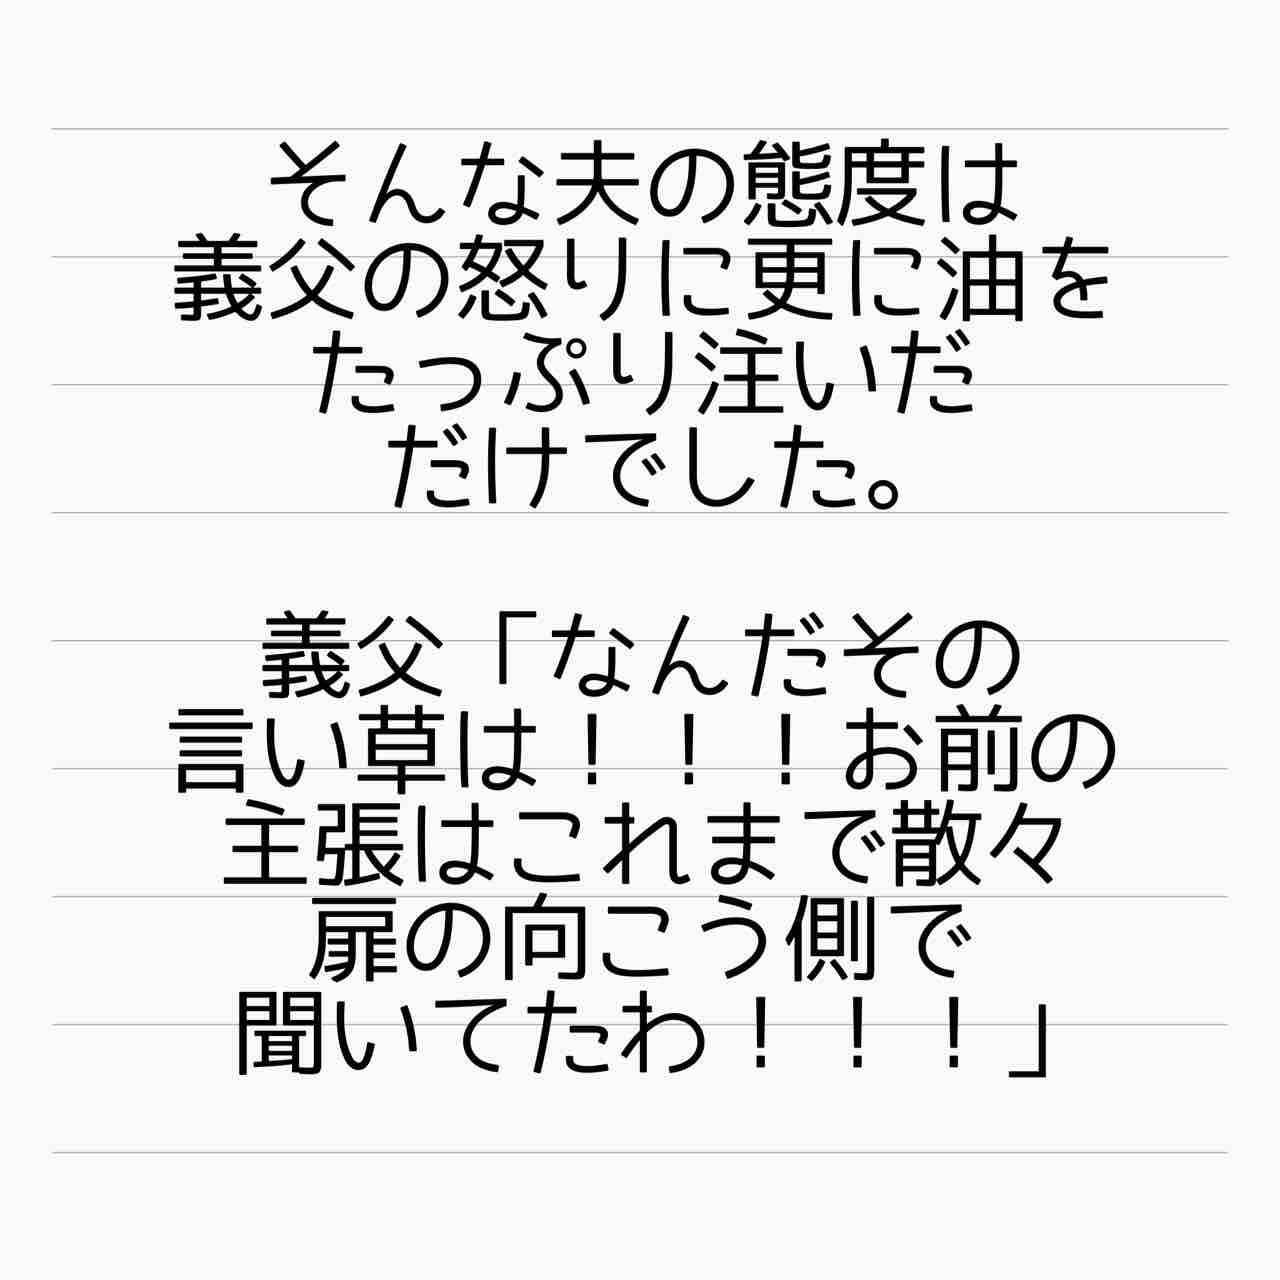 そんな夫の態度は
義父の怒りに更に油を
たっぷり注いだ
だけでした。
義父「なんだその
言い草は！！！お前の
主張はこれまで散々
扉の向こう側で
聞いてたわ！！！」